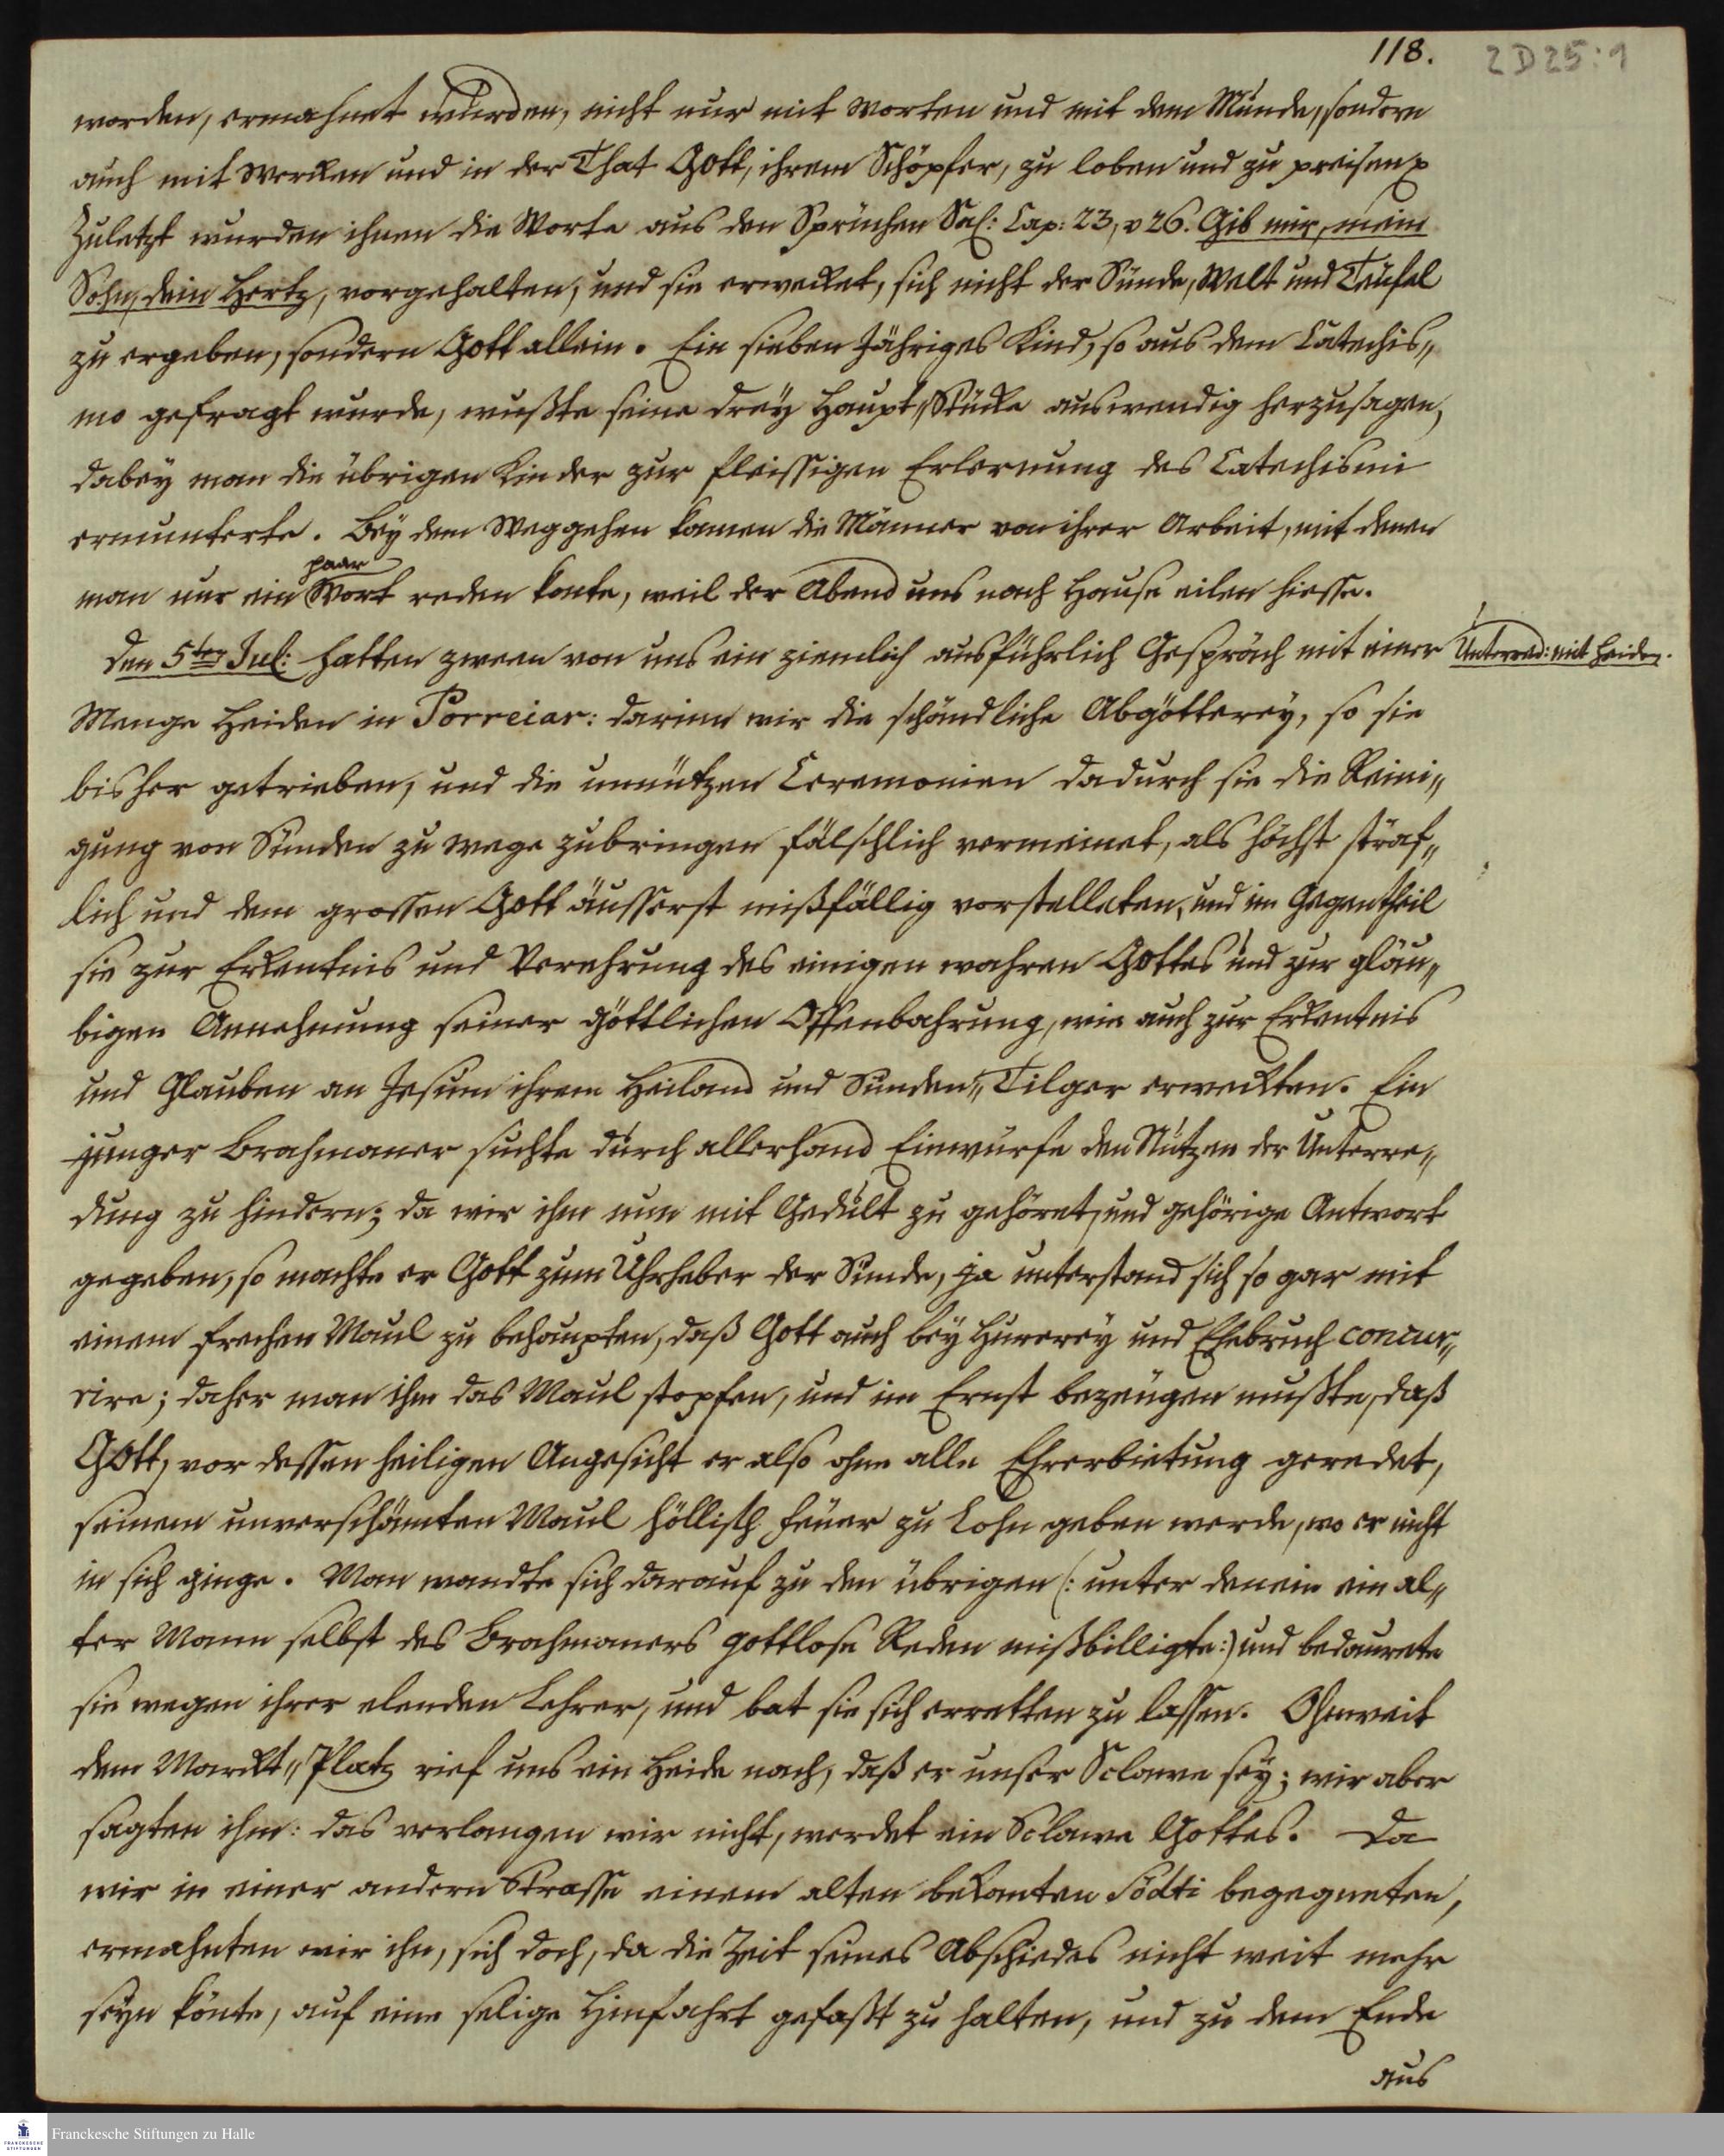 118.
2 D 25:1
worden, ermahnet wurden, nicht nur mit worten und mit dem Munde, sondern
auch mit Wercken und in der That Gott, ihrem Schöpfer, zu loben und zu preisen p
Zuletzt wurden ihnen die Worte aus den Sprüchen Sal: Cap: 23, v 26. Gib mir, mein
Sohn, dein Hertz, vorgehalten, und sie erwecket, sich nicht der Sünde, Welt und Teufel
zu ergeben, sondern Gott allein. Ein sieben Jähriges Kind, so aus dem Catechis„
mo gefragt wurde, wußte seine drey Haupt„Stücke auswendig herzusagen,
dabey man die übrigen Kinder zur fleissigen Erlernung des Catechismi
ermunterte. Bey dem Weggehen kamen die Männer von ihrer Arbeit, mit denen
paar
man nur ein Wort reden konte, weil der Abend uns nach Hause eilen hiesse.
Den 5ten Jul: hatten zween von uns ein ziemlich ausführlich Gespräch mit einer
Unterred: mit Heiden.
Menge Heiden in Porreiar: darinn wir die schändliche Abgötterey, so sie
bisher getrieben, und die unnützen Ceremonien dadurch sie die Reini„
gung von Sünden zu wege zubringen fälschlich vermeinet, als höchst sträf„
lich und dem grossen Gott äusserst mißfällig vorstelleten, und im Gegentheil
sie zur Erkentnis und Verehrung des einigen wahren Gottes und zur gläu„
bigen Annehmung seiner göttlichen Offenbahrung, wie auch zur Erkentnis
und Glauben an Jesum ihrem Heiland und Sünden„Tilger erweckten. Ein
junger Brahmaner suchte durch allerhand Einwürfe den Nutzen der Unterre„
dung zu hindern; da wir ihm nun mit Gedult zu gehöret, und gehörige Antwort
gegeben, so machte er Gott zum Uhrheber der Sünde, ja unterstand sich so gar mit
einem frechen Maul zu behaupten, daß Gott auch bey Hurerey und Ehebruch concur„
rire; daher man ihm das Maul stopfen, und im Ernst bezeugen mußte, daß
GOtt, vor dessen heiligen Angesicht er also ohne alle Ehrerbietung geredet,
seinem unverschämten Maul höllisch Feuer zu Lohn geben werde, wo er nicht
in sich ginge. Man wandte sich darauf zu den übrigen (: unter denen ein al„
ter Mann selbst des Brahmaners gottlose Reden mißbilligte:) und bedaurete
sie wegen ihrer elenden Lehrer, und bat sie sich erretten zu lassen. Ohnweit
dem Marckt„Platz rief uns ein Heide nach, daß er unser Sclave sey; wir aber
sagten ihm: das verlangen wir nicht, werdet ein Sclave Gottes. Da
wir in einer andern Strasse einem alten bekanten Södti begegneten,
ermahnten wir ihn, sich doch, da die Zeit seines Abschiedes nicht weit mehr
seyn könte, auf eine selige Hinfahrt gefaßt zu halten, und zu dem Ende
aus
FRANCKESCHE
STIFTUNGEN
Franckesche Stiftungen zu Halle